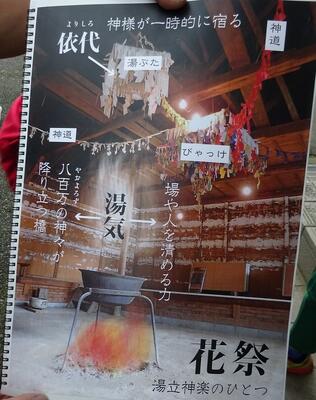 よりしろ
依代 神様が一時的に宿る
神道
湯ぶた
神道
びゃっけ
やおよろず
八百万の神々が
降り立つ標
湯気
場や人を清める力
花祭
湯立神楽のひとつ